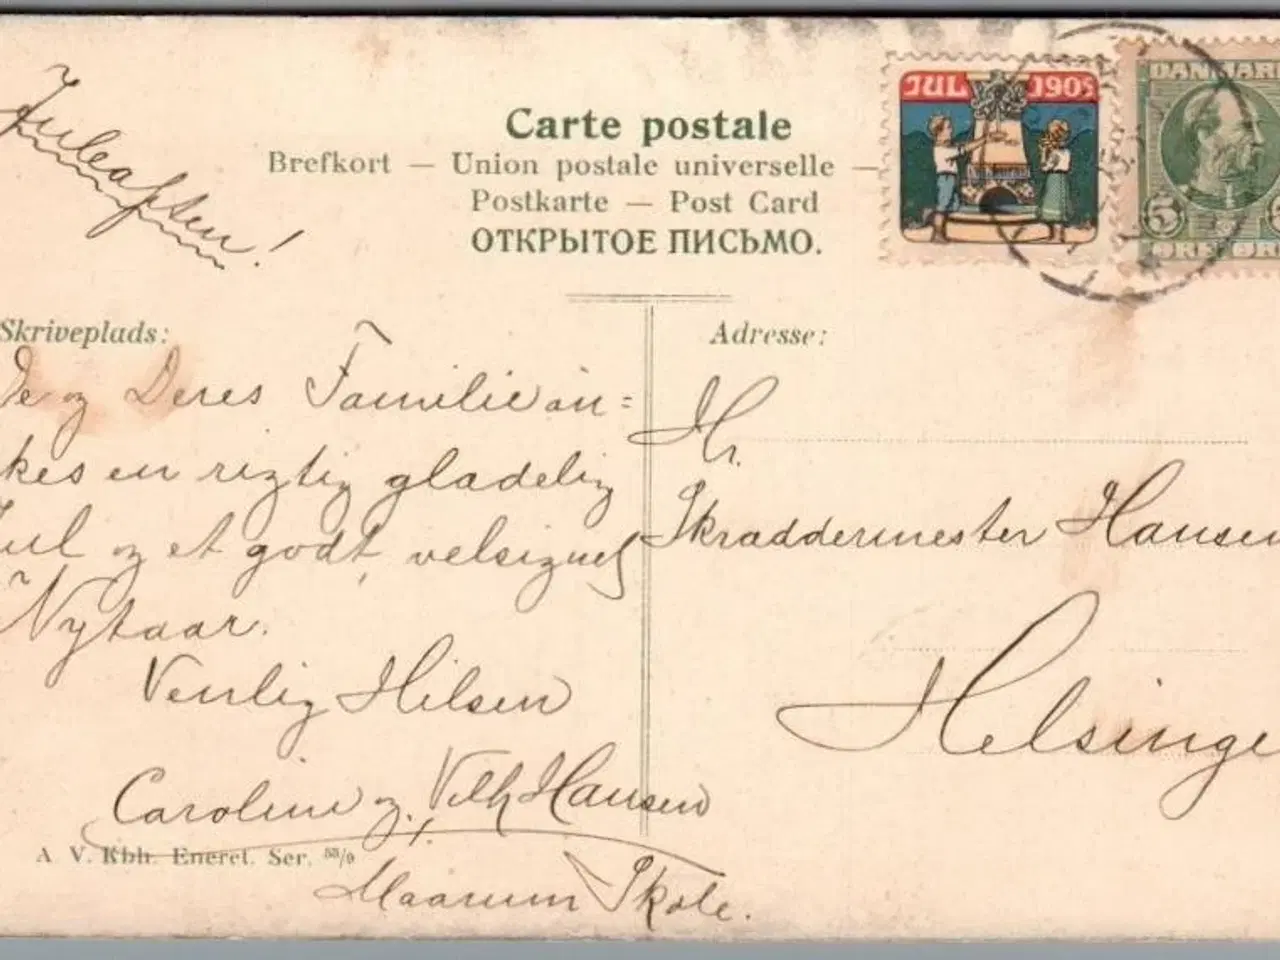 Juleaften!
Carte postale
Brefkort — Union postale universelle —
Postkarte — Post Card
ОТКРЫТОЕ ПИСЬМО.
JUL 1905
DANMARK
5
ØRE ØRE
Skriveplads:
De og Deres Familie øn=
kes en rigtig gladelig
Jul og et godt, velsignet
Nytaar.
Venlig Hilsen
Caroline og Vilh Hansen
Maarum Skole.
A V. Kbh. Eneret. Ser.
Adresse:
Hr.
Skræddermester Hansen
Helsinge